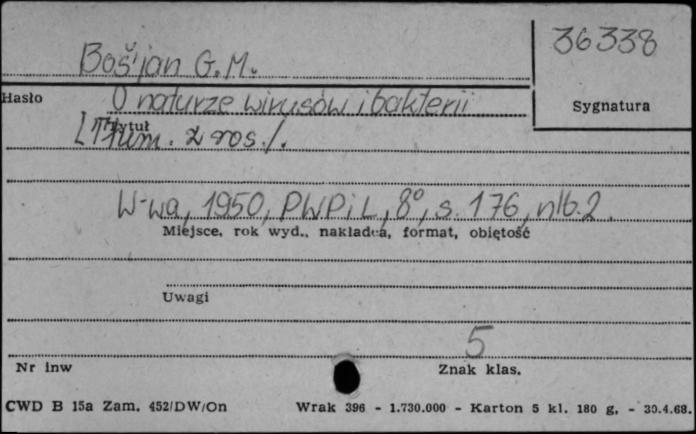 36338
Bošjan G.M.
Hasło
O naturze wirusów i bakterii
Sygnatura
Tytuł
[Tłum. z ros./.
W-wa, 1950, PWPiL, 8°, s. 176, nlb. 2.
Miejsce, rok wyd., nakładca, format, objętość
Uwagi
5
Nr inw
Znak klas.
CWD B 15a Zam. 452/DW/On
Wrak 396 - 1.730.000 - Karton 5 kl. 180 g. - 30.4.68.